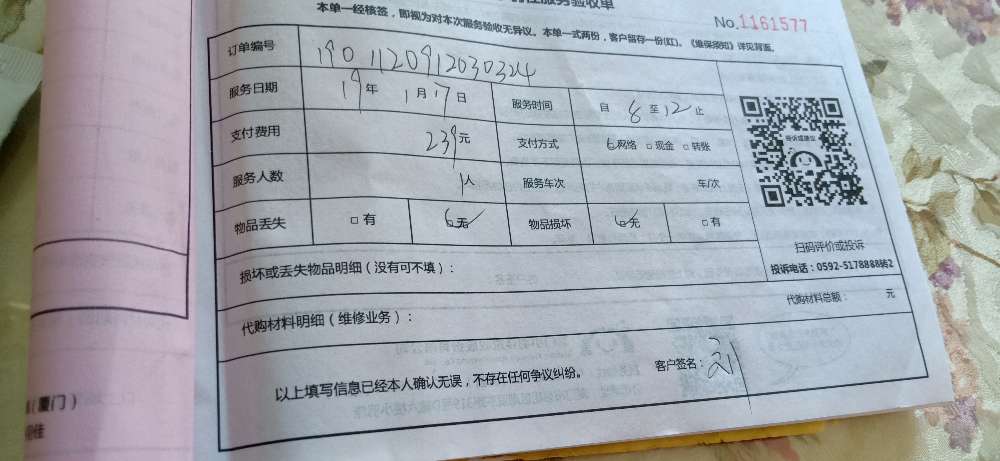 服务验收单
本单一经核签，即视为对本次服务验收无异议。本单一式两份，客户留存一份(红)。《维保须知》详见背面。
No.1161577
订单编号 1901120912030324
服务日期 19年 1月17日 服务时间 自 8 至 12 止
支付费用 239元 支付方式 网络 □现金 □转账
服务人数 1人 服务车次 车/次
物品丢失 □有 无 物品损坏 无 □有
投诉或建议
扫码评价或投诉
投诉电话：0592-5178888转2
损坏或丢失物品明细（没有可不填）：
代购材料明细（维修业务）： 代购材料总额： 元
以上填写信息已经本人确认无误，不存在任何争议纠纷。 客户签名：刘
（厦门）
佳